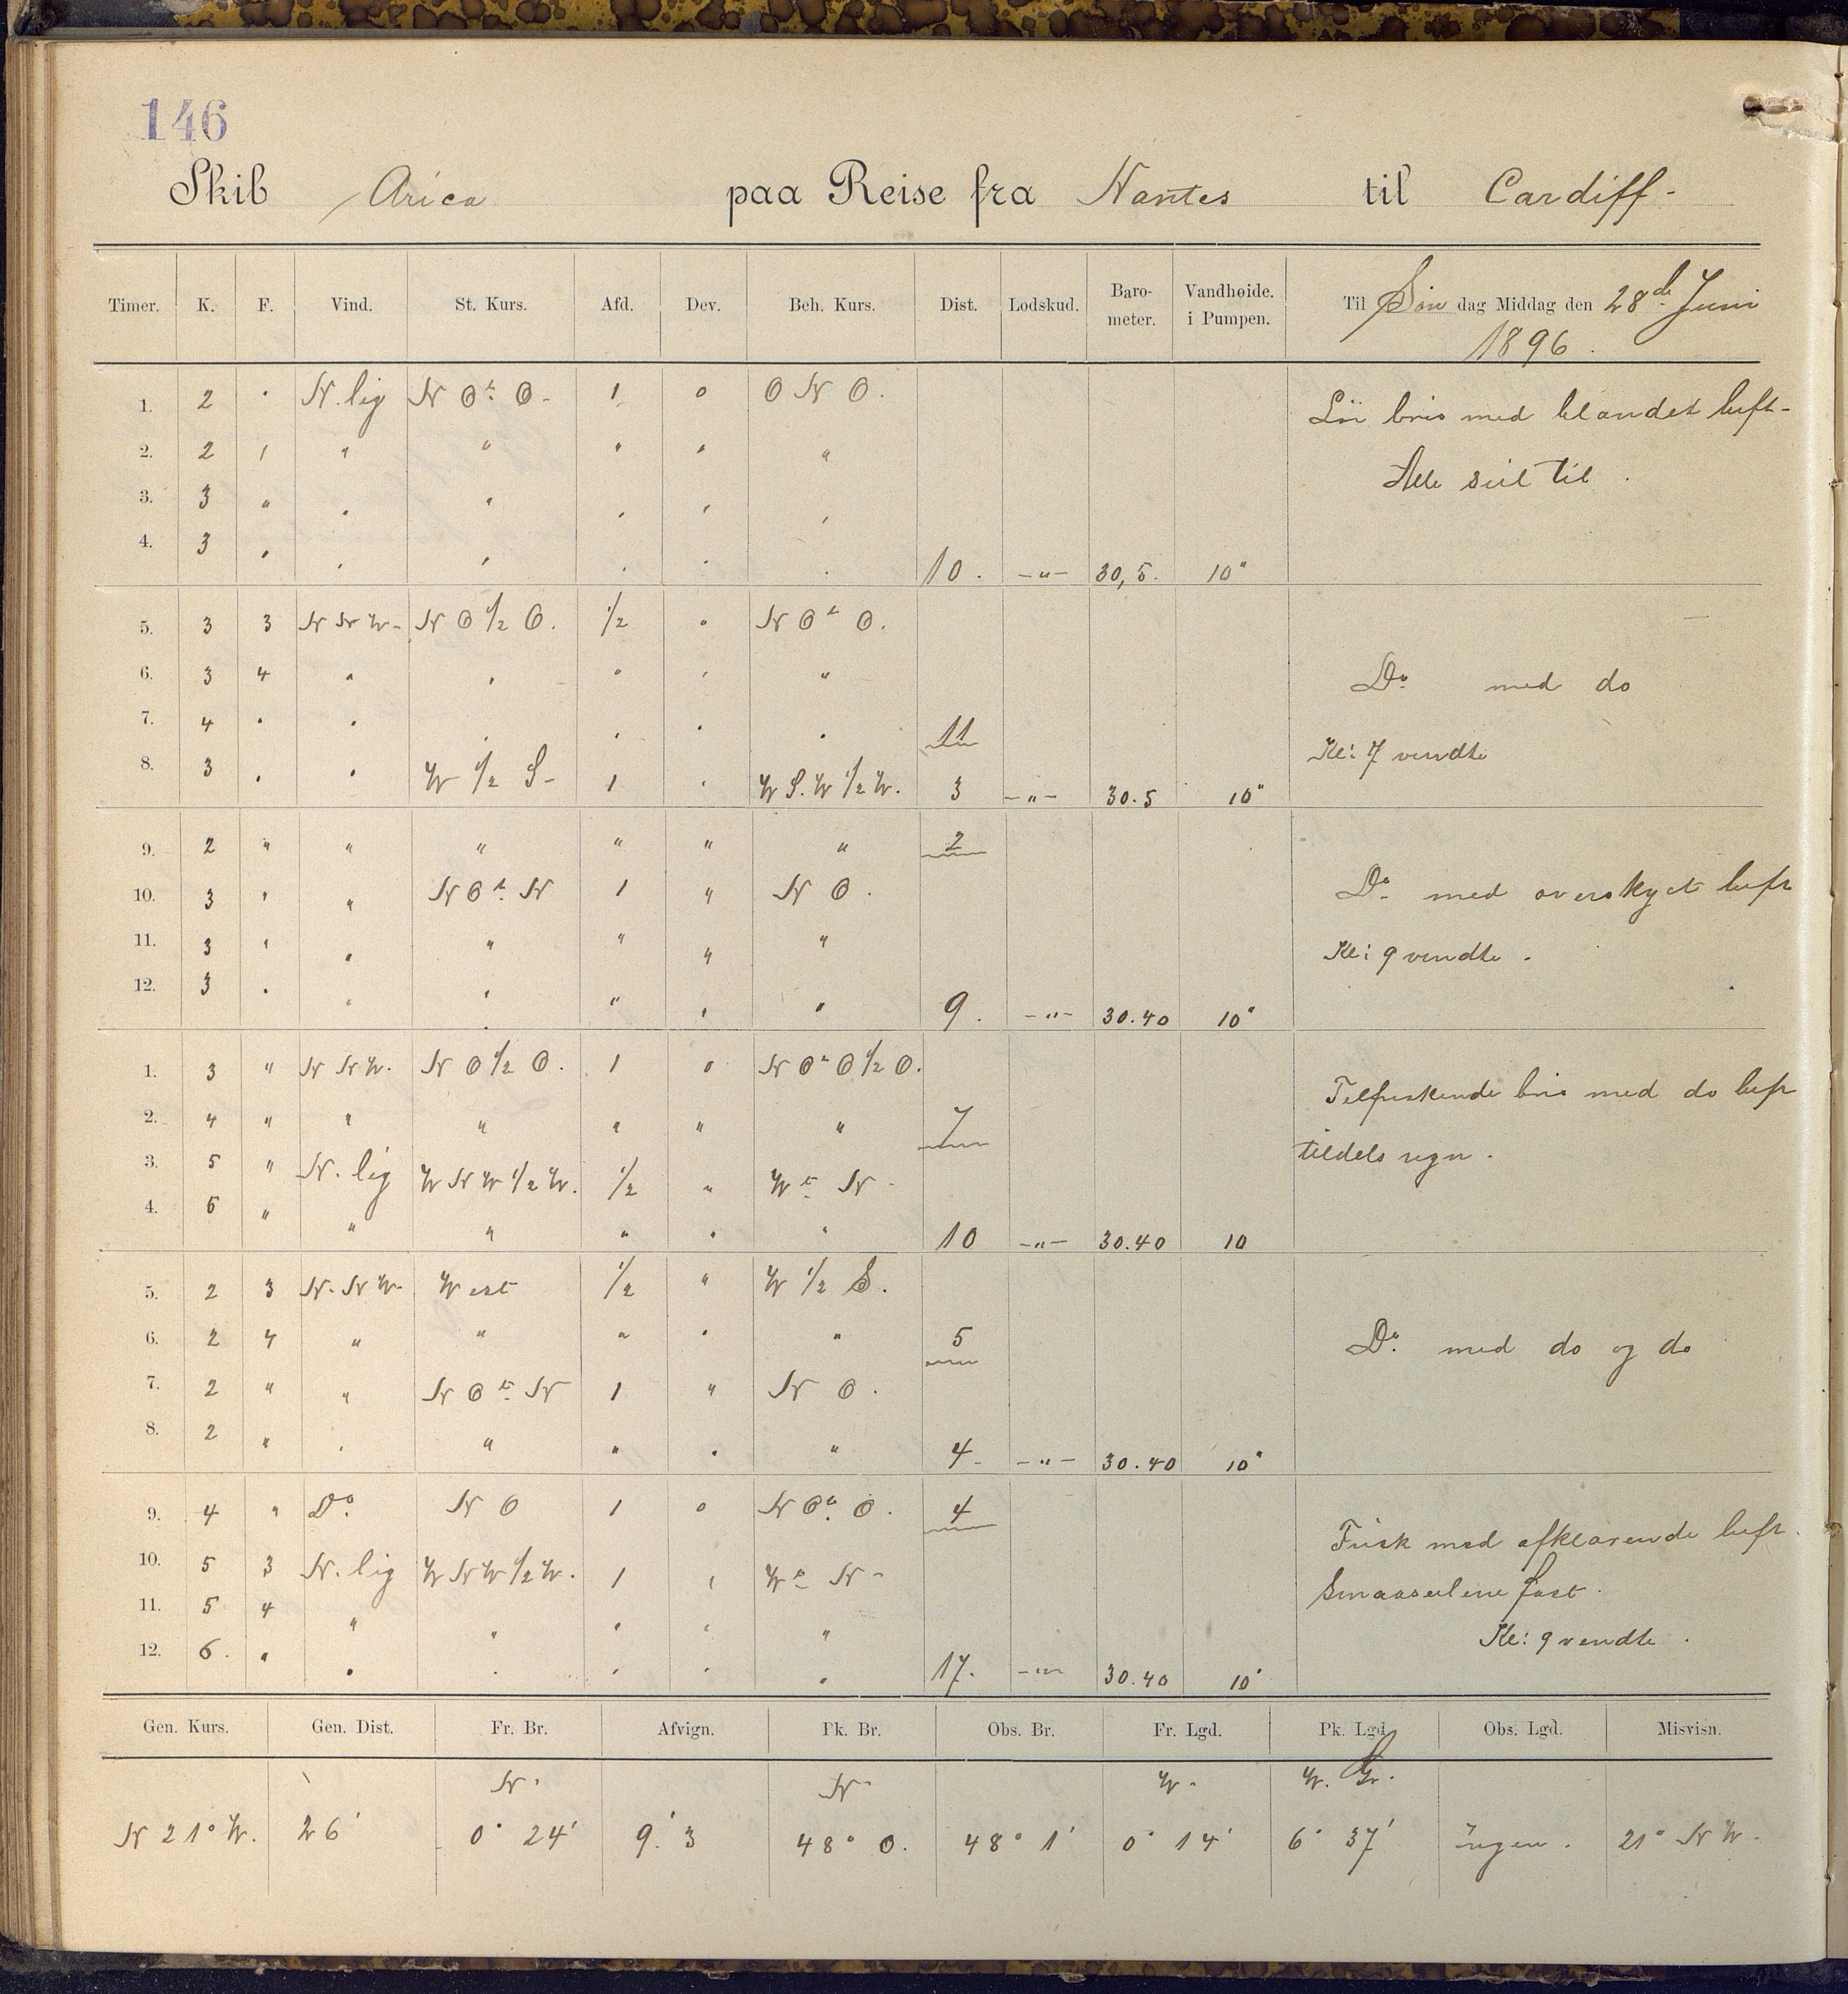 146
Skib Arica paa Reise fra Nantes til Cardiff -
Timer. K. F. Vind. St. Kurs. Afd. Dev. Beh. Kurs. Dist. Lodskud. Baro-meter. Vandhøide. i Pumpen. Til Søn dag Middag den 28de Juni 1896.
1. 2 " N. lig N O t. O. 1 0 O N O. Lør bris med blandet luft -
2. 2 1 " " " " "
Alle seil til.
3. 3 " " " " " "
4. 3 " " " " " " 10. -"- 30,5. 10"
5. 3 3 N N W- N O 1/2 O. 1/2 " N O t O.
6. 3 4 " " " " " Do. med do
7. 4 " " " " " " 11
Kl: 7 vendte
8. 3 " " W 1/2 S- 1 " W S. W 1/2 W. 3 -"- 30.5 10"
9. 2 " " " " " " 2
10. 3 " " N O t. N 1 " N O. Do. med overskyet luft
11. 3 " " " " " " Kl: 9 vendte.
12. 3 " " " " " " 9. -"- 30.40 10"
1. 3 " N N W. N O 1/2 O. 1 0 N O t O 1/2 O.
Tilfriskende bris med do luft
2. 4 " " " " " " 7
3. 5 " N. lig W N W 1/2 W. 1/2 " W t. N - tildels regn.
4. 5 " " " " " " 10 -"- 30.40 10
5. 2 3 N. N W- West 1/2 " W 1/2 S.
6. 2 4 " " " " " 5 Do. med do og do
7. 2 " " N O t. N 1 " N O.
8. 2 " " " " " " 4- -"- 30.40 10"
9. 4 " Do. N O 1 0 N O t. O. 4
Frisk med afklarende luft.
10. 5 3 N. lig W N W 1/2 W. 1 " W t. N -
Smaaseilene fast.
11. 5 4 " " " " "
Kl: 9 vendte.
12. 6. " " " " " " 17. -"- 30.40 10"
Gen. Kurs. Gen. Dist. Fr. Br. Afvign. Pk. Br. Obs. Br. Fr. Lgd. Pk. Lgd. Obs. Lgd. Misvisn.
N. N. W. W. Gr.
N 21° W. 26' 0° 24' 9.'3 48° 0. 48° 1' 0° 14' 6° 37' Ingen. 21° N W.